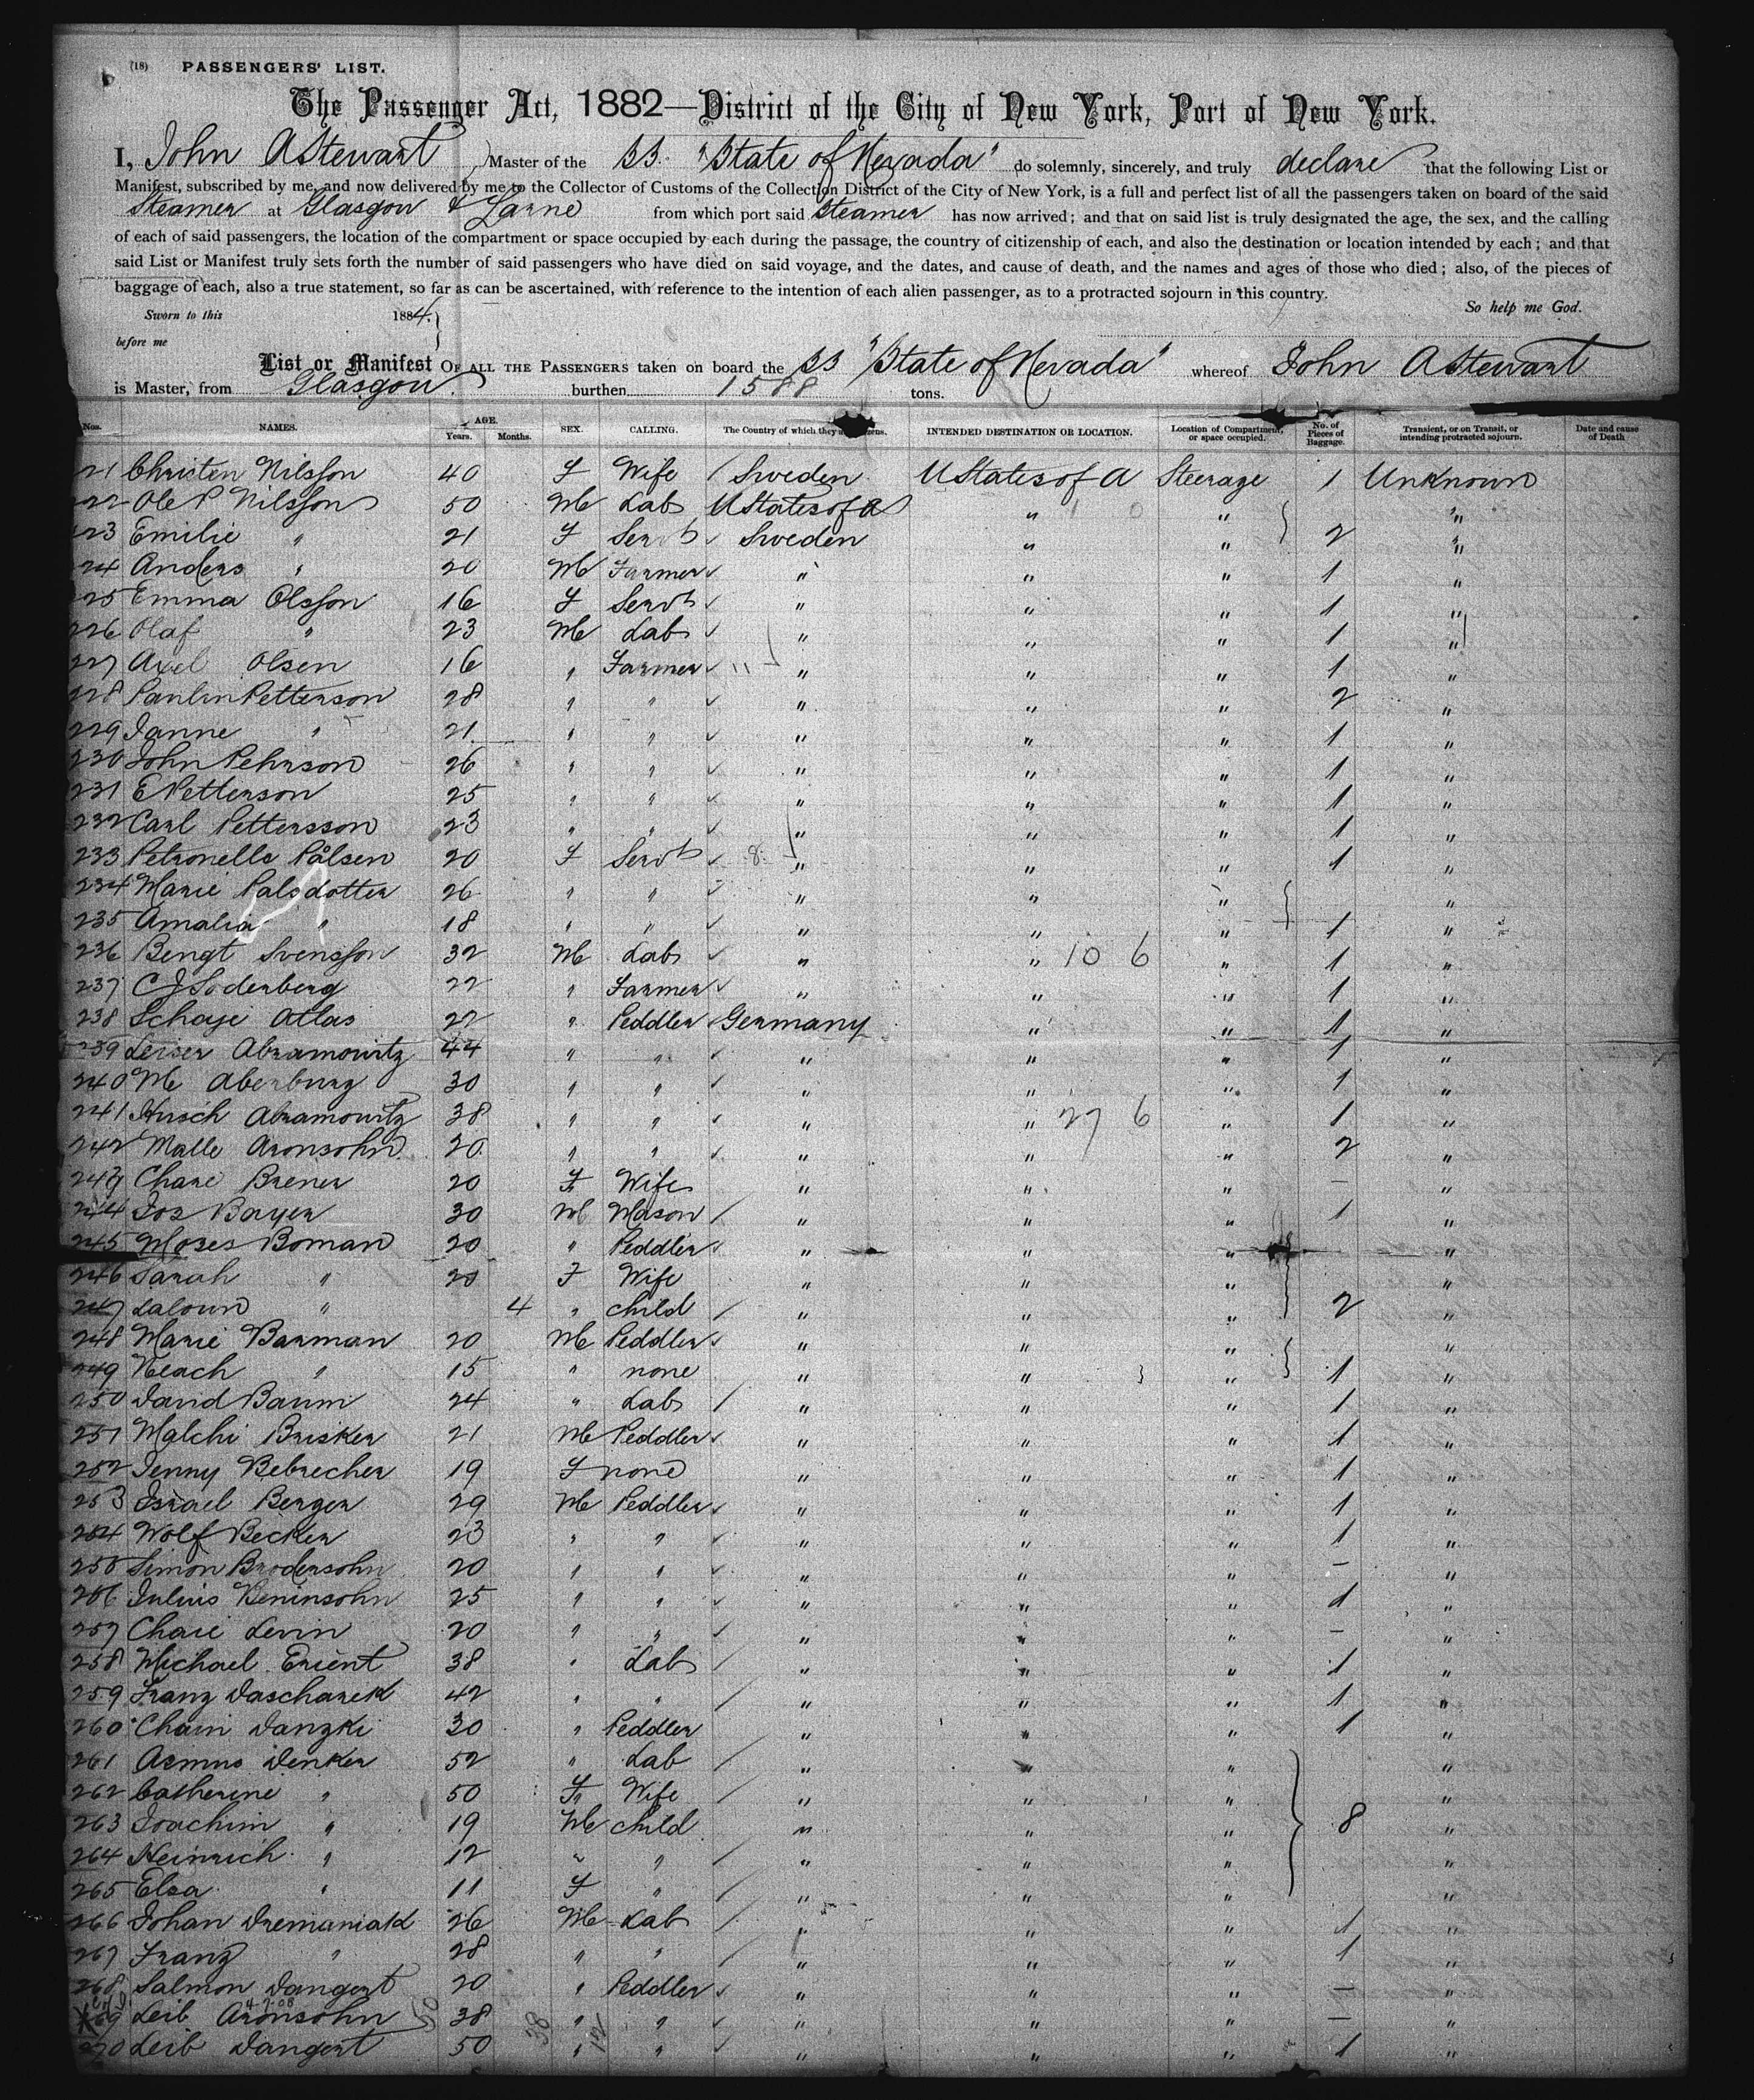 (18) PASSENGERS' LIST.
The Passenger Act, 1882—District of the City of New York, Port of New York.
I, John A Stewart Master of the SS. "State of Nevada" do solemnly, sincerely, and truly declare that the following List or
Manifest, subscribed by me, and now delivered by me to the Collector of Customs of the Collection District of the City of New York, is a full and perfect list of all the passengers taken on board of the said
Steamer at Glasgow & Larne from which port said Steamer has now arrived; and that on said list is truly designated the age, the sex, and the calling
of each of said passengers, the location of the compartment or space occupied by each during the passage, the country of citizenship of each, and also the destination or location intended by each; and that
said List or Manifest truly sets forth the number of said passengers who have died on said voyage, and the dates, and cause of death, and the names and ages of those who died; also, of the pieces of
baggage of each, also a true statement, so far as can be ascertained, with reference to the intention of each alien passenger, as to a protracted sojourn in this country.
So help me God.
Sworn to this 1884.
before me
List or Manifest OF ALL THE PASSENGERS taken on board the SS "State of Nevada" whereof John A Stewart
is Master, from Glasgow burthen 1588 tons.
Nos. NAMES. AGE. Years. Months. SEX. CALLING. The Country of which they are citizens. INTENDED DESTINATION OR LOCATION. Location of Compartment, or space occupied. No. of Pieces of Baggage. Transient, or on Transit, or intending protracted sojourn. Date and cause of Death
21 Christen Nilsson 40 F Wife Sweden U States of A Steerage 1 Unknown
22 Ole P Nilsson 50 M Lab U States of A " " "
23 Emilie " 21 F Servt Sweden " " 2 "
24 Anders " 20 M Farmer " " " 1 "
25 Emma Olsson 16 F Servt " " " 1 "
226 Olaf " 23 M Lab " " " 1 "
227 Axel Olsen 16 " Farmer " " " 1 "
228 Paulin Petterson 28 " " " " " 2 "
229 Janne " 21 " " " " " 1 "
230 John Pehrson 26 " " " " " 1 "
231 E Petterson 25 " " " " " 1 "
232 Carl Pettersson 23 " " " " " 1 "
233 Petronella Pålsen 20 F Servt 8 " " " 1 "
234 Marie Palsdotter 26 " " " " " "
235 Amalia " 18 " " " " " 1 "
236 Bengt Svensson 32 M Lab " " 10 6 " 1 "
237 C J Soderberg 22 " Farmer " " " 1 "
238 Schaje Atlas 22 " Peddler Germany " " 1 "
239 Leiser Abramowitz 44 " " " " " 1 "
240 M Aberburg 30 " " " " " 1 "
241 Hirsch Abramowitz 38 " " " " 27 6 " 1 "
242 Malle Aronsohn 20 " " " " " 2 "
243 Chane Brener 20 F Wife " " " – "
244 Jos Bayer 30 M Mason " " " 1 "
245 Moses Boman 20 " Peddler " " " "
246 Sarah " 20 F Wife " " " "
247 Laloun " 4 " child " " " 2 "
248 Marie Barman 20 M Peddler " " " "
249 Neach " 15 " none " " " 1 "
250 David Baum 24 " Lab " " " 1 "
251 Malchi Brisker 21 M Peddler " " " 1 "
252 Jenny Bebrecher 19 F none " " " 1 "
253 Israel Berger 29 M Peddler " " " 1 "
254 Wolf Becker 23 " " " " " 1 "
255 Simon Brodersohn 20 " " " " " – "
256 Julius Beninsohn 25 " " " " " 1 "
257 Chaie Levin 20 " " " " " – "
258 Michael Erient 38 " Lab " " " 1 "
259 Franz Dascharek 42 " " " " " 1 "
260 Chaim Danzki 30 " Peddler " " " 1 "
261 Asmus Denker 52 " Lab " " " "
262 Catherine " 50 F Wife " " " "
263 Joachim " 19 M child " " " 8 "
264 Heinrich " 12 " " " " " "
265 Elsa " 11 F " " " " "
266 Johan Dremaniak 26 M Lab " " " 1 "
267 Franz " 28 " " " " " 1 "
268 Salmon Dangert 20 " Peddler " " " – "
269 Leib Aronsohn 38 " " " " " – "
270 Leib Dangert 50 " " " " " 1 "